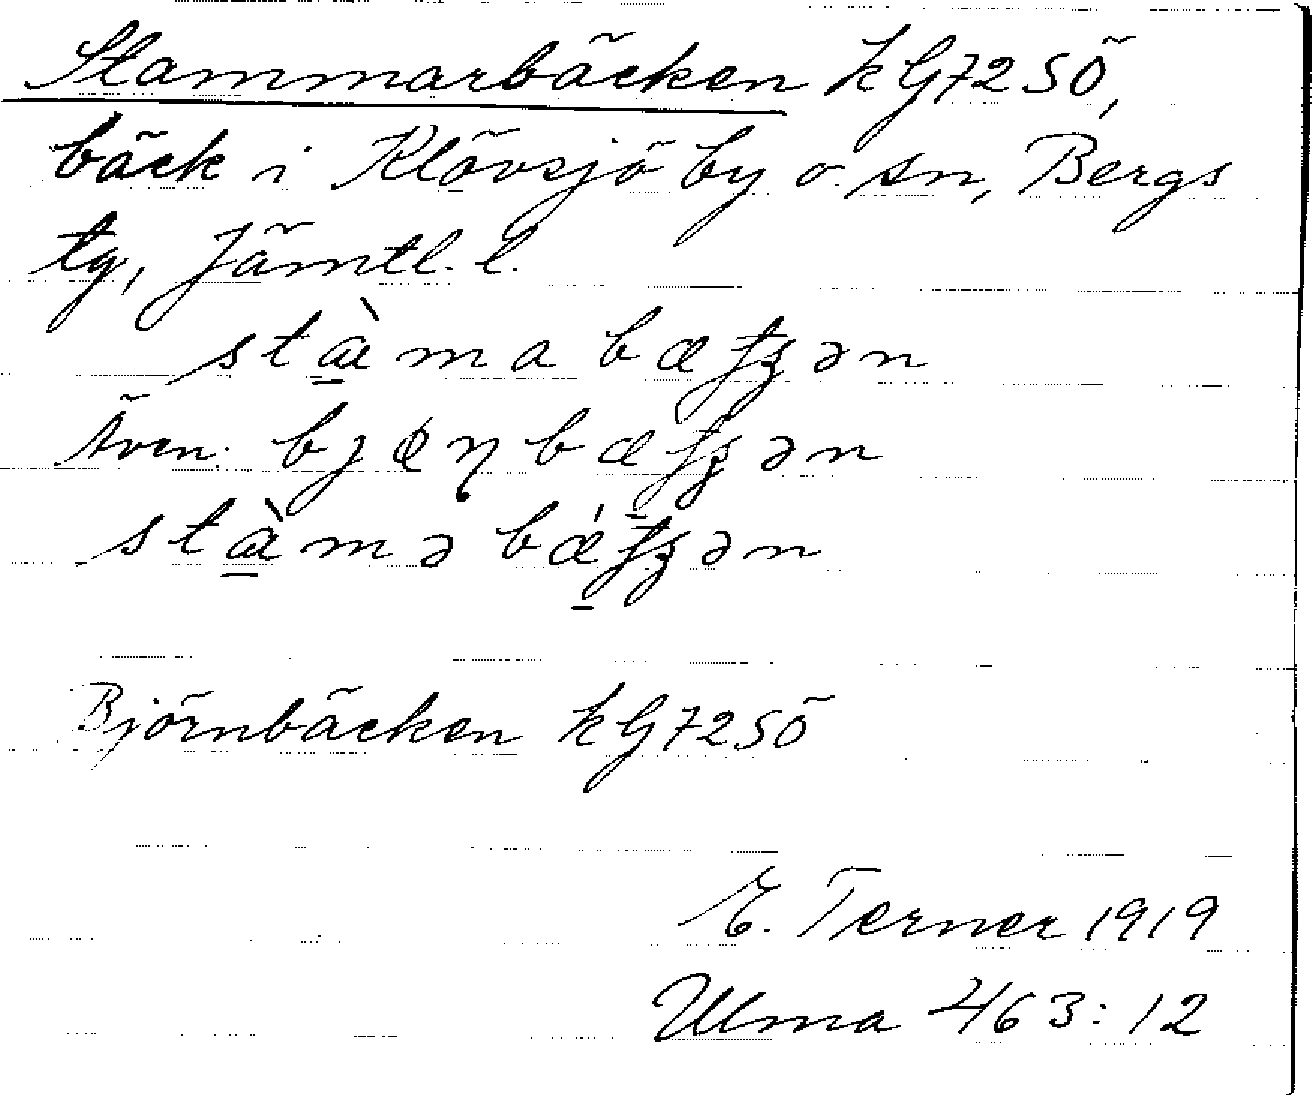 Stammarbäcken kG72SÖ,
bäck i Klövsjö by o. sn, Bergs
tg, Jämtl. l.
stæ̀mabæƫʒən
Även. bjɶɳbæƫʒən
stæ̀məbǽƫʒən
Björnbäcken kG72SÖ
E. Terner 1919
Ulma 463:12